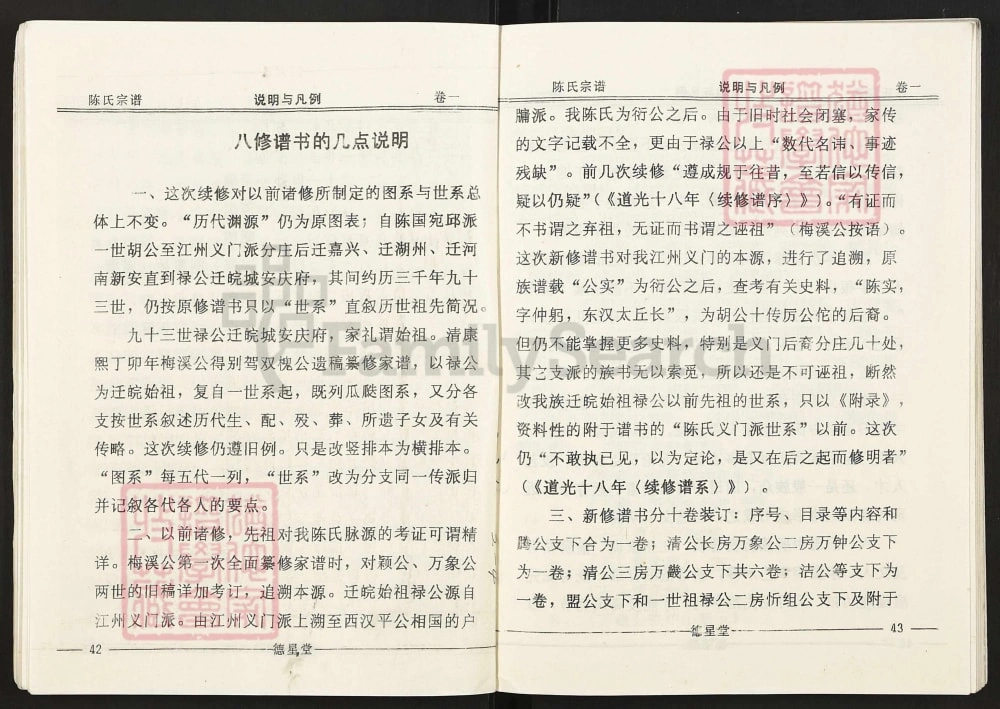 陈氏宗谱 说明与凡例 卷一
八修谱书的几点说明
一、这次续修对以前诸修所制定的图系与世系总
体上不变。“历代渊源”仍为原图表；自陈国宛邱派
一世胡公至江州义门派分庄后迁嘉兴、迁湖州、迁河
南新安直到禄公迁皖城安庆府，其间约历三千年九十
三世，仍按原修谱书只以“世系”直叙历世祖先简况。
九十三世禄公迁皖城安庆府，家礼谓始祖。清康
熙丁卯年梅溪公得别驾双槐公遗稿纂修家谱，以禄公
为迁皖始祖，复自一世系起，既列瓜瓞图系，又分各
支按世系叙述历代生、配、殁、葬、所遗子女及有关
传略。这次续修仍遵旧例。只是改竖排本为横排本。
“图系”每五代一列，“世系”改为分支同一传派归
并记叙各代各人的要点。
二、以前诸修，先祖对我陈氏脉源的考证可谓精
详。梅溪公第一次全面纂修家谱时，对颖公、万象公
两世的旧稿详加考订，追溯本源。迁皖始祖禄公源自
江州义门派。由江州义门派上溯至西汉平公相国的户
42 德星堂
陈氏宗谱 说明与凡例 卷一
牖派。我陈氏为衍公之后。由于旧时社会闭塞，家传
的文字记载不全，更由于禄公以上“数代名讳、事迹
残缺”。前几次续修“遵成规于往昔，至若信以传信，
疑以仍疑”（《道光十八年〈续修谱序〉》）。“有证而
不书谓之弃祖，无证而书谓之诬祖”（梅溪公按语）。
这次新修谱书对我江州义门的本源，进行了追溯，原
族谱载“公实”为衍公之后，查考有关史料，“陈实，
字仲躬，东汉太丘长”，为胡公十传厉公佗的后裔。
但仍不能掌握更多史料，特别是义门后裔分庄几十处，
其它支派的族书无以索觅，所以还是不可诬祖，断然
改我族迁皖始祖禄公以前先祖的世系，只以《附录》，
资料性的附于谱书的“陈氏义门派世系”以前。这次
仍“不敢执已见，以为定论，是又在后之起而修明者”
（《道光十八年〈续修谱系〉》）。
三、新修谱书分十卷装订：序号、目录等内容和
腾公支下合为一卷；清公长房万象公二房万钟公支下
为一卷；清公三房万畿公支下共六卷；洁公等支下为
一卷，盟公支下和一世祖禄公二房忻组公支下及附于
德星堂 43